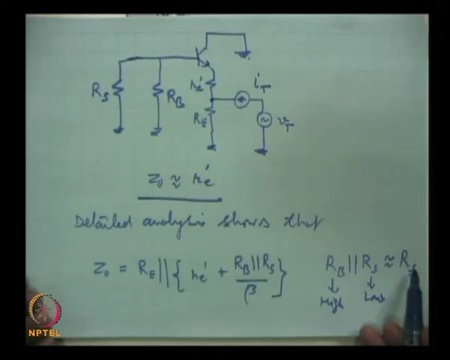 R_S R_B r_e' R_E i_T v_T
Z_o ≈ r_e'
Detailed analysis shows that
Z_o = R_E || { r_e' + (R_B || R_S) / β } R_B || R_S ≈ R_S
↓ ↓
High Low
NPTEL